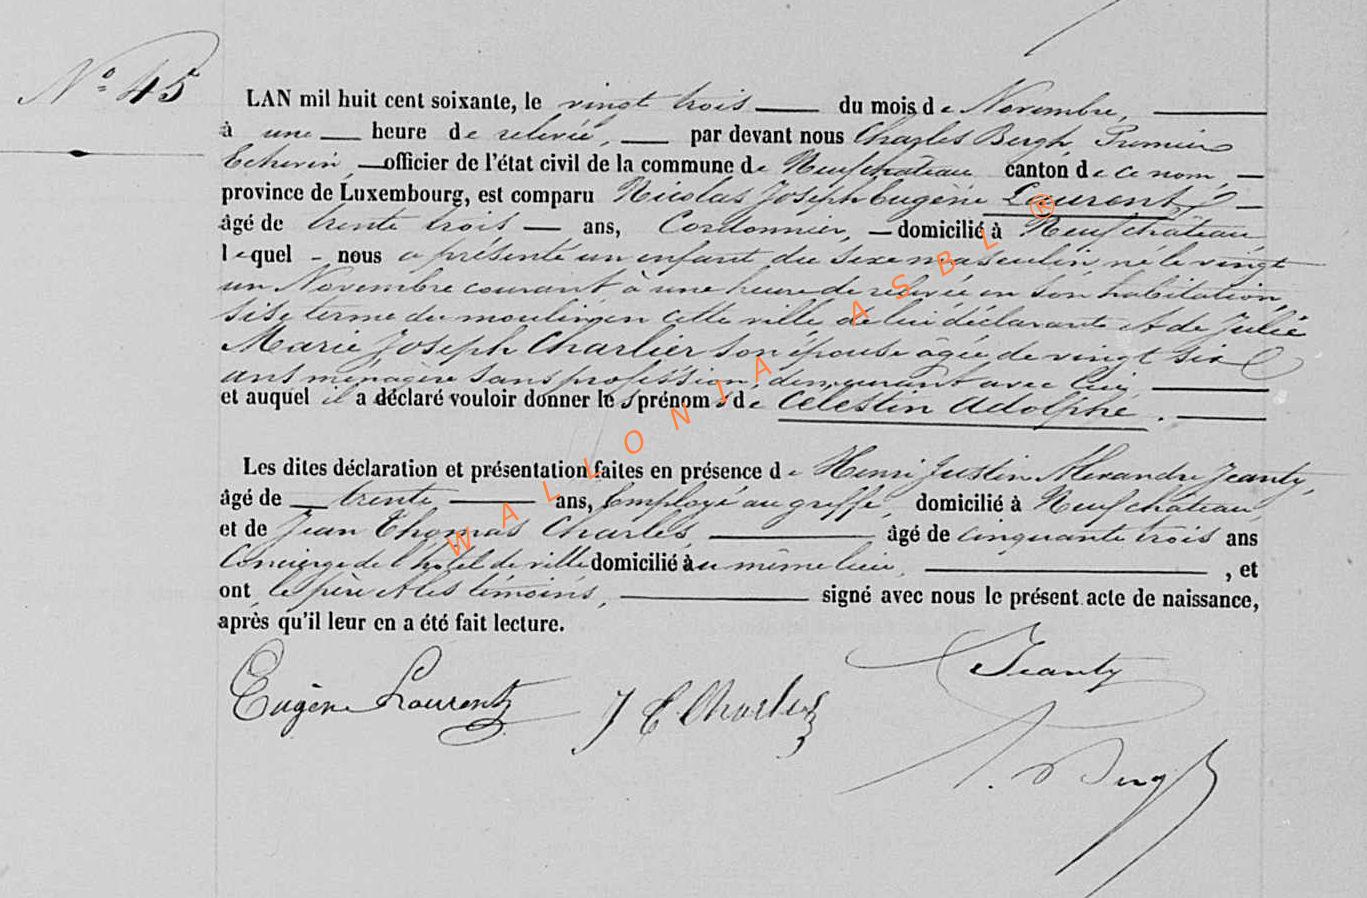 N° 45
LAN mil huit cent soixante, le vingt trois du mois de Novembre,
à une heure de relevée, par devant nous Charles Bergh, Premier
Echevin, officier de l'état civil de la commune de Neufchâteau canton de ce nom,
province de Luxembourg, est comparu Nicolas Joseph Eugène Laurent,
âgé de trente trois ans, Cordonnier, domicilié à Neufchâteau,
lequel nous a présenté un enfant du sexe masculin, né le vingt
un Novembre courant à une heure de relevée en son habitation,
sise terme du moulin, en cette ville, de lui déclarant et de Julie
Marie Joseph Charlier son épouse âgée de vingt six
ans ménagère sans profession, demeurant avec lui,
et auquel il a déclaré vouloir donner les prénoms de Célestin Adolphe.
Les dites déclaration et présentation faites en présence de Henri Justin Alexandre Jeanty,
âgé de trente ans, Employé au greffe, domicilié à Neufchâteau,
et de Jean Thomas Charles, âgé de cinquante trois ans
Concierge de l'hôtel de ville domicilié au même lieu, , et
ont, le père et les témoins, signé avec nous le présent acte de naissance,
après qu'il leur en a été fait lecture.
Eugène Laurent J T Charles Jeanty
Bergh
WALLONIA ASBL ®